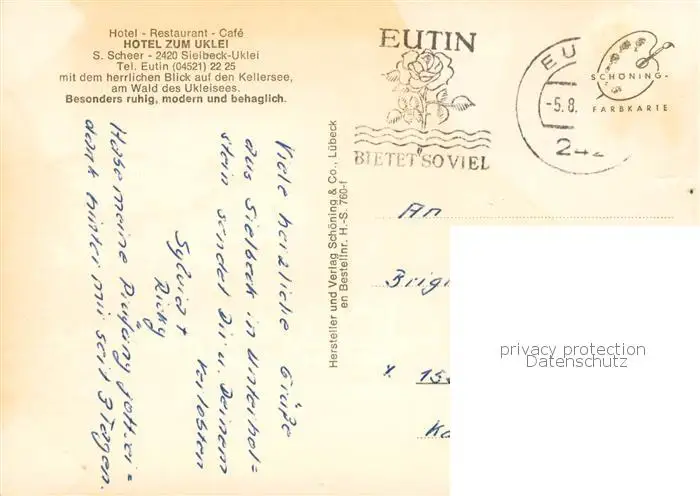 Hotel - Restaurant - Café
HOTEL ZUM UKLEI
S. Scheer - 2420 Sielbeck-Uklei
Tel. Eutin (04521) 22 25
mit dem herrlichen Blick auf den Kellersee,
am Wald des Ukleisees.
Besonders ruhig, modern und behaglich.
Viele herzliche Grüße
aus Sielbeck in Unterhol=
stein sendet Dir u. Deinem
Verlobten
Sylvia +
Ricky
Habe meine Prüfung gottsei=
dank hinter mir seit 3 Tagen.
Hersteller und Verlag Schöning & Co., Lübeck
en Bestellnr. H.-S. 760-f
EUTIN
BIETET SO VIEL
EU
-5.8.
242
SCHÖNING-
FARBKARTE
An
Brig
155
privacy protection
Datenschutz